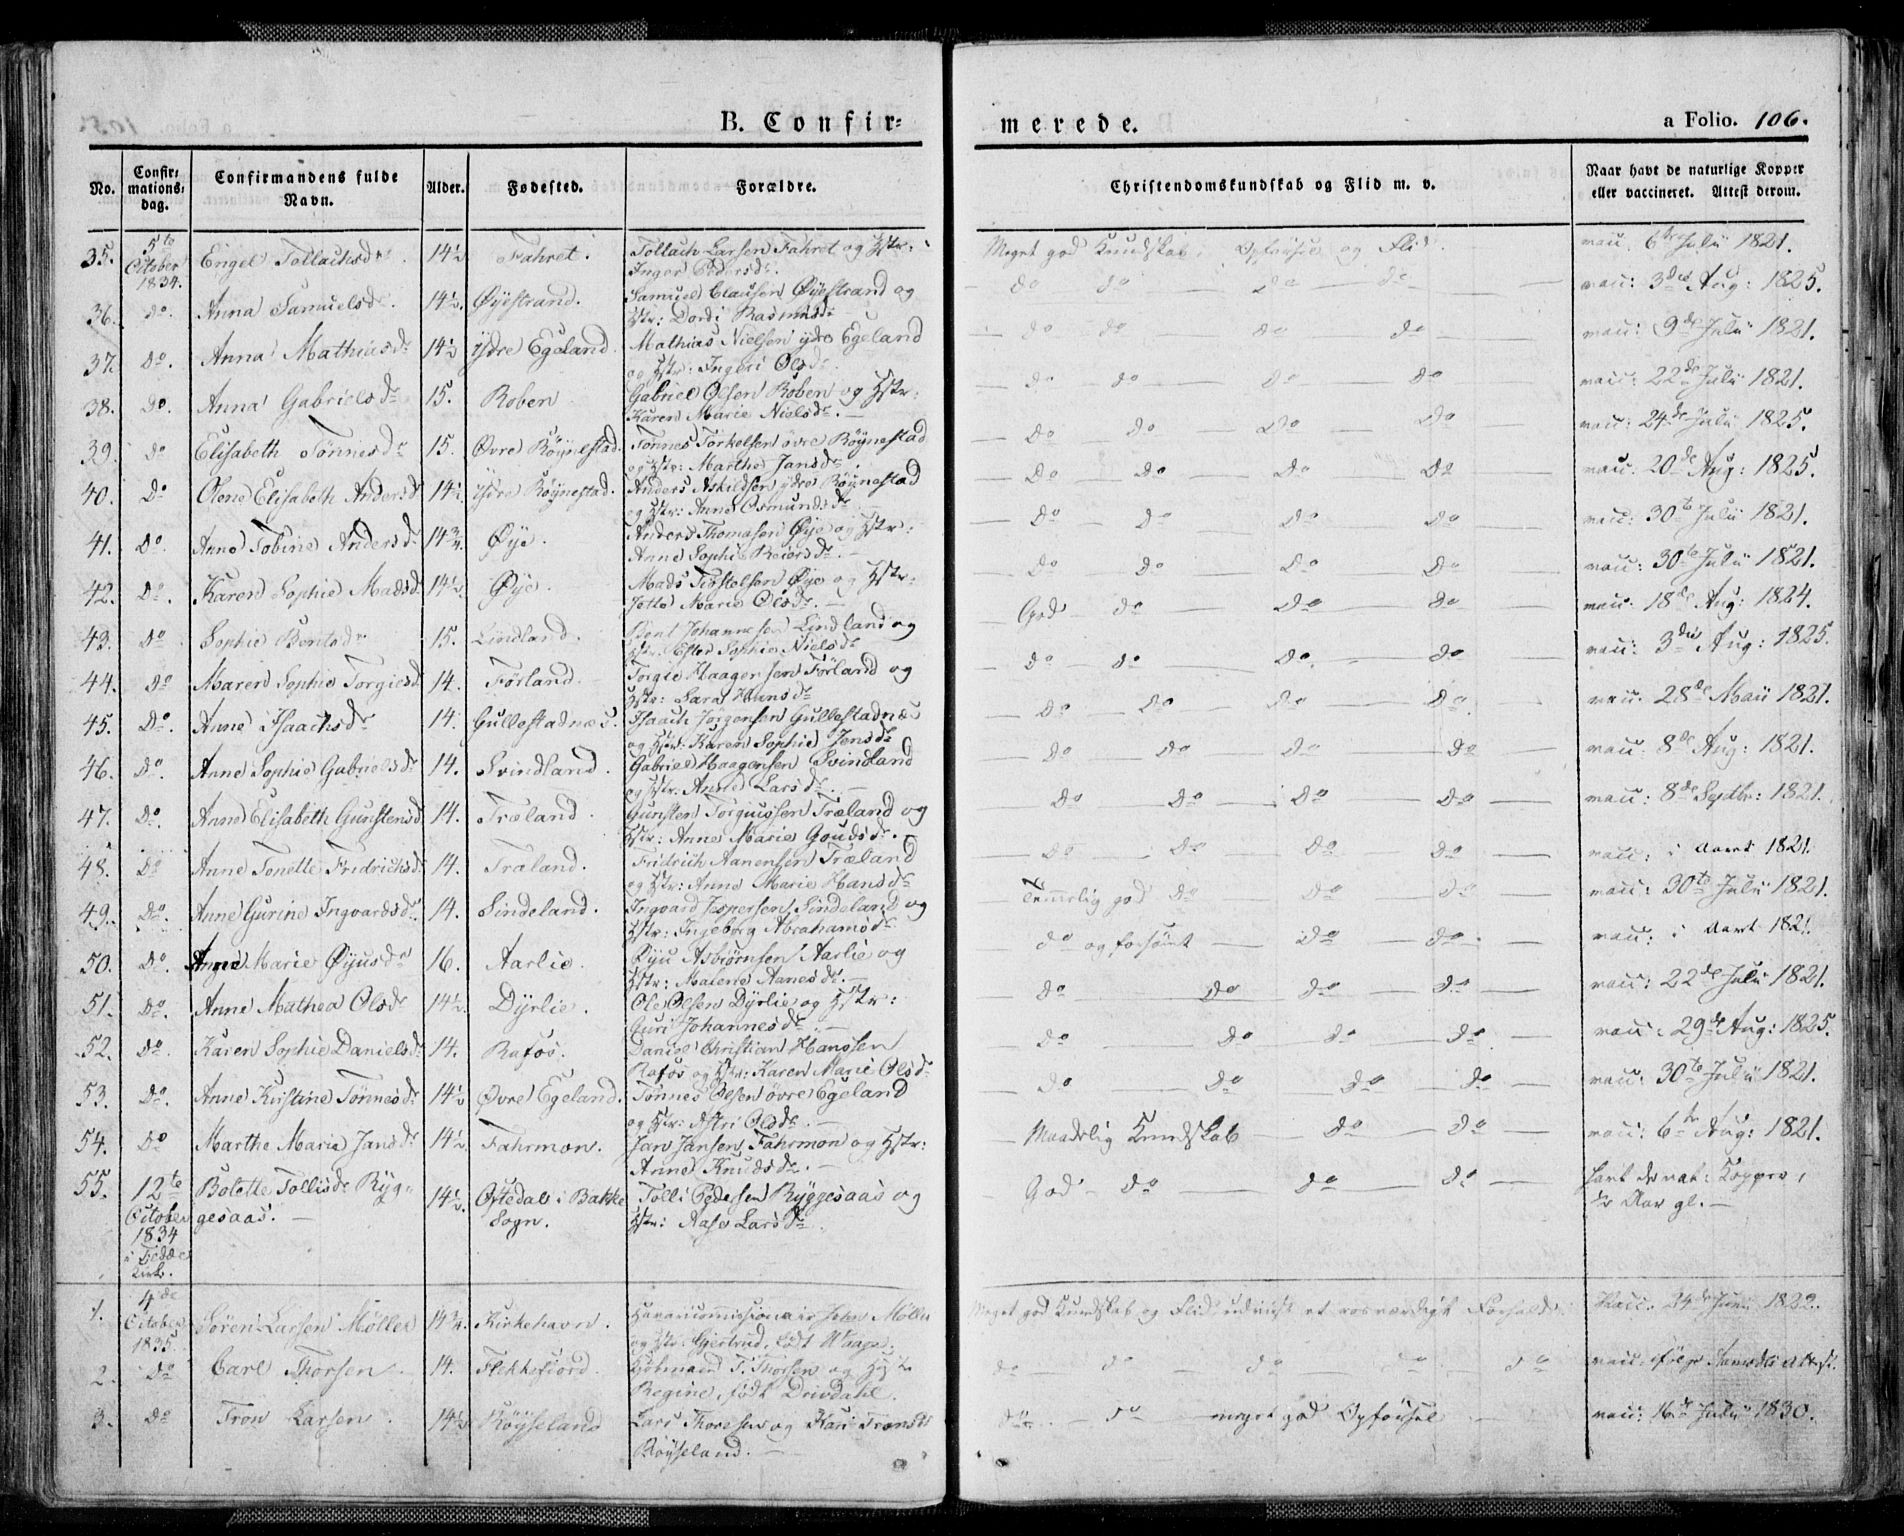 B. Confir=
merede.
a Folio. 106.
No.
Confir=
mations=
dag.
Confirmandens fulde
Navn.
Alder.
Fødested.
Forældre.
Christendomskundskab og Flid m. v.
Naar havt de naturlige Kopper
eller vaccineret. Attest derom.
35. 5te October 1834. Engel Tollachsdr. 14½ Fahret. Tollach Larsen Fahret og Hstr:
Inger Pedersdr. Meget god Kundskab, Opførsel og Flid. vacc. 6te Julii 1821.
36. Do. Anna Samuelsdr. 14½. Øyestrand. Samuel Clausen Øyestrand og
Hstr: Dordi Rasmusdr Do Do Do Do vacc: 3die Aug: 1825.
37. Do. Anna Mathiasdr 14½ Ysdre Egeland. Mathias Nielsen ydre Egeland
og Hstr: Ingeri Olsdr. Do Do Do Do vacc: 9de Julii 1821.
38. Do. Anna Gabrielsdr 15. Roben. Gabriel Olsen Roben og Hstr:
Karen Marie Nielsdr. Do Do Do Do vacc: 22de Julii 1821.
39. Do Elisabeth Tønnesdr 15. Øvre Røynestad. Tønnes Torkelsen øvre Røynestad
og Hstr: Marthe Jansdr. Do Do Do Do vacc: 24de Julii 1825.
40. Do Olene Elisabeth Andersd 14½ Ysdre Røynestad. Anders Askildsen ydre Røynestad
og Hstr: Anne Osmundsdr Do Do Do Do vacc: 20de Aug: 1825.
41. Do. Anne Tobine Andersd. 14¾. Øye. Anders Thomasen Øye og Hstr:
Anne Sophie Reiersdr. Do Do Do Do vacc: 30te Julii 1821.
42. Do. Karen Sophie Madsd. 14½. Øye. Mads Øye og Hstr:
Marie Olsdr. Do Do Do Do vacc: 30te Julii 1821.
43. Do Sophie Bentsdr 15. Lindland. Bent Johannesen Lindland og
Hstr. Ester Sophie Nielsdr God Do Do Do vacc: 18de Aug: 1824.
44. Do Maren Sophie Torgiesd. 14. Førland. Torgie Haagensen Førland og
Hstr: Sara Hansdr Do Do Do Do vacc: 3die Aug: 1825.
45. Do. Anne Isaachsdr 14. Gullestadnæs. Isaach Jørgensen Gullestadnæs
og Hstr: Karen Sophie Jensdr Do Do Do Do. vacc: 28de Maii 1821.
46. Do. Anne Sophie Gabrielsdr 14. Svindland. Gabriel Haagensen Svindland
og Hstr: Anne Larsdr. Do Do Do Do vacc: 8de Aug: 1821.
47. Do. Anne Elisabeth Gunstensd. 14. Træland. Gunsten Torgiussen Træland og
Hstr: Anne Marie Goudsdr. Do Do Do Do vacc: 8de Septbr: 1821.
48. Do Anne Tonette Fridrichsd. 14. Træland. Fridrich Aanensen Træland
og Hstr: Anne Marie Hansdr Do Do Do Do vacc: i Aaret 1821.
49. Do. Anne Gurine Ingvardsdr. 14. Sindeland. Ingvard Jespersen Sindeland og
Hstr: Ingeborg Abrahamsdr Temmelig god Do Do Do vacc: 30te Julii 1821.
50. Do. Anne Marie Øyusdr 16. Aarlie. Øyu Asbiørnsen Aarlie og
Hstr: Malene Aanesdr. Do og forsømt Do Do. vacc: i Aaret 1821.
51. Do. Anne Mathea Olsdr 14½. Dyrlie. Ole Olsen Dyrlie og Hstr:
Guri Johannesdr. Do Do Do Do vacc: 22de Julii 1821.
52. Do. Karen Sophie Danielsdr. 14. Rafos. Daniel Christian Hanssen
Rafos og Hstr: Karen Marie Olsdr Do Do Do Do. vacc: 29de Aug: 1825.
53. Do. Anne Kirstine Tønnesdr 14½ Øvre Egeland. Tønnes Olsen øvre Egeland
og Hstr: Astri Olsdr. Do Do Do Do vacc: 30te Julii 1821.
54. Do Marthe Marie Jansdr 14½. Fahrmon. Jan Jansen Fahrmon og Hstr:
Anne Knudsdr. Maadelig Kundskab Do Do vacc: 6te Aug: 1821.
55. 12te October 1834 i Fedde Kirke. Bolette Tollisdr Ryg=
gesaas. 14½. Østedal i Bakke
Sogn. Tolli Pedersen Ryggesaas og
Hstr: Aase Larsdr. God Do Do Do havt de nat: Kopper,
½ Aar gl.
1. 4de October 1835. Søren Larsen Møller 14¾. Kirkehavn. Havariecommissionair John Møller
og Hstr: Gjertrud, født Waage. Meget god Kundskab og Flid, udviist et rosværdigt Forhold. Vacc. 24de Junii 1822.
2. Do Carl Thorsen 14. Flekkefiord. Kiøbmand T. Thorsen og Hstr
Regine, født Drivdahl. Do Do Do Do Do vacc: ifølge Attest.
3. Do Tron Larsen. 14½ Røyseland Lars Thoresen og Kari Tronsdr
Røyseland. Do Do meget god Opførsel vacc: 16de Julii 1830.